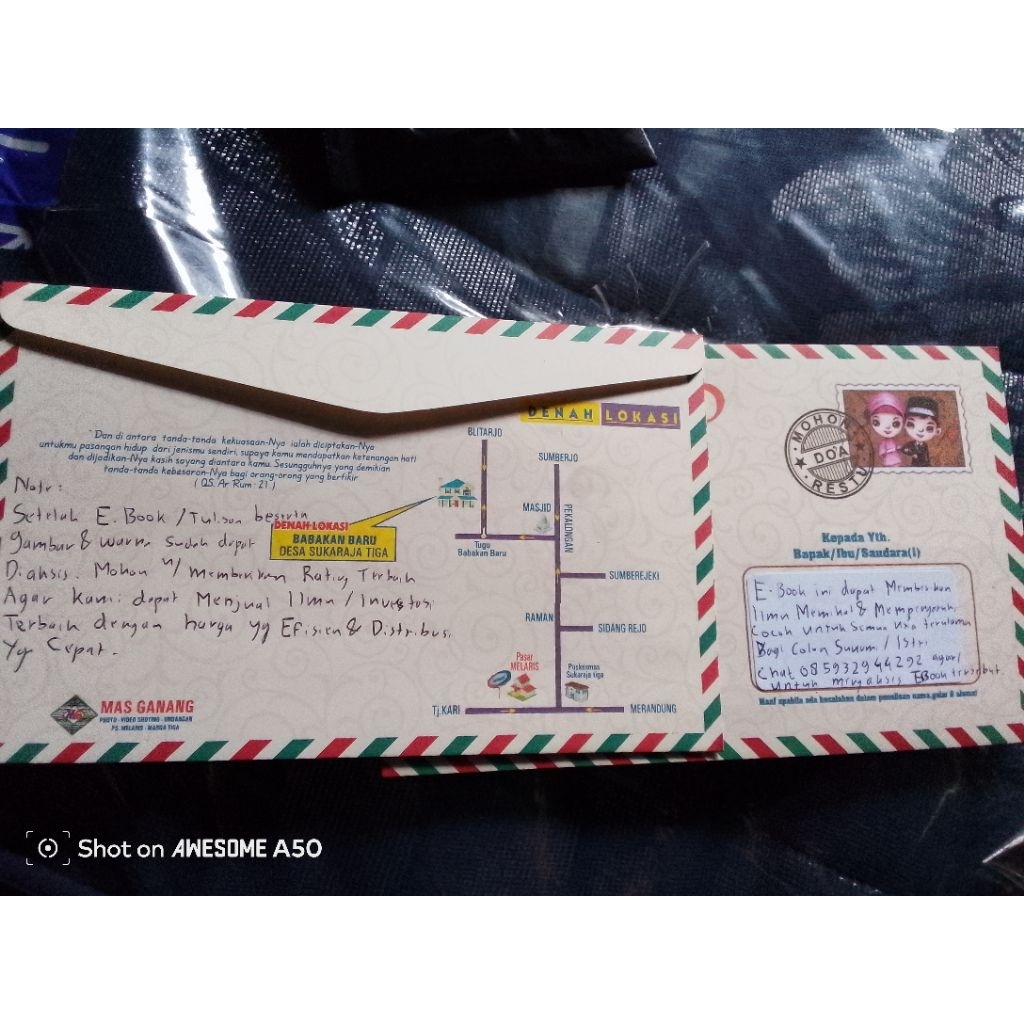 DENAH LOKASI
"Dan di antara tanda-tanda kekuasaan-Nya ialah diciptakan-Nya
untukmu pasangan hidup dari jenismu sendiri, supaya kamu mendapatkan ketenangan hati
dan dijadikan-Nya kasih sayang diantara kamu. Sesungguhnya yang demikian
tanda-tanda kebesaran-Nya bagi orang-orang yang berfikir
( QS. Ar Rum : 21 )
Setelah E. Book / Tulisan beserta
gambar & warna sudah dapat
Diaksis. Mohon U/ memberikan Rating Terbaik
Agar Kami dapat Menjual Ilmu / Investasi
Terbaik dengan harga yg Efisien & Distribusi
Yg Cepat.
DENAH LOKASI
BABAKAN BARU
DESA SUKARAJA TIGA
BLITARJO
SUMBERJO
MASJID
PEKALONGAN
Tugu
Babakan Baru
SUMBEREJEKI
RAMAN
SIDANG REJO
Pasar
MELARIS
Puskesmas
Sukaraja tiga
Tj.KARI
MERANDUNG
MAS GANANG
PHOTO - VIDEO SHOTING - UNDANGAN
PS. MELARIS - MARGA TIGA
MOHON
DO'A
RESTU
Kepada Yth.
Bapak/Ibu/Saudara(i)
E-Book ini dapat Memberikan
Ilmu Memikat & Mempengaruhi
Cocok untuk semua usia terutama
Bagi Calon Suami / Istri
Chat 085932944292 agar/
untuk mengaksis EBook tersebut
Maaf apabila ada kesalahan dalam penulisan nama,gelar & alamat
Shot on AWESOME A50